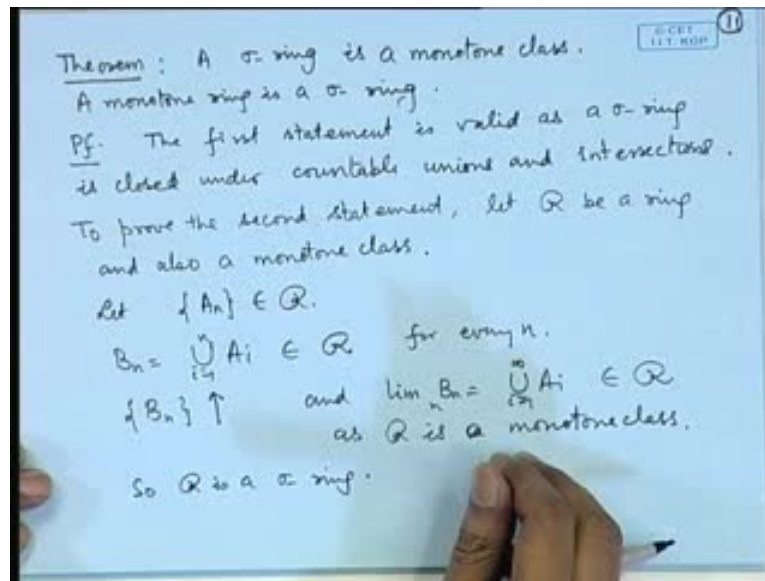 11
© CET
I.I.T. KGP
Theorem : A σ-ring is a monotone class.
A monotone ring is a σ-ring.
Pf. The first statement is valid as a σ-ring
is closed under countable unions and intersections.
To prove the second statement, let R be a ring
and also a monotone class.
Let {An} ∈ R.
Bn = ⋃ⁿᵢ₌₁ Ai ∈ R for every n.
{Bn} ↑ and lim n Bn = ⋃^∞ᵢ₌₁ Ai ∈ R
as R is a monotone class.
So R is a σ-ring.